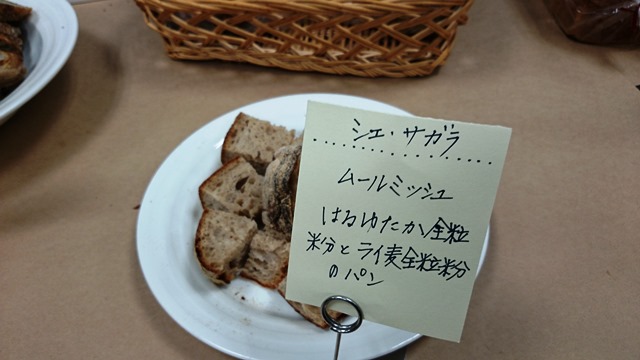 シェ・サガラ
ムールミッシュ
はるゆたか全粒
粉とライ麦全粒粉
のパン